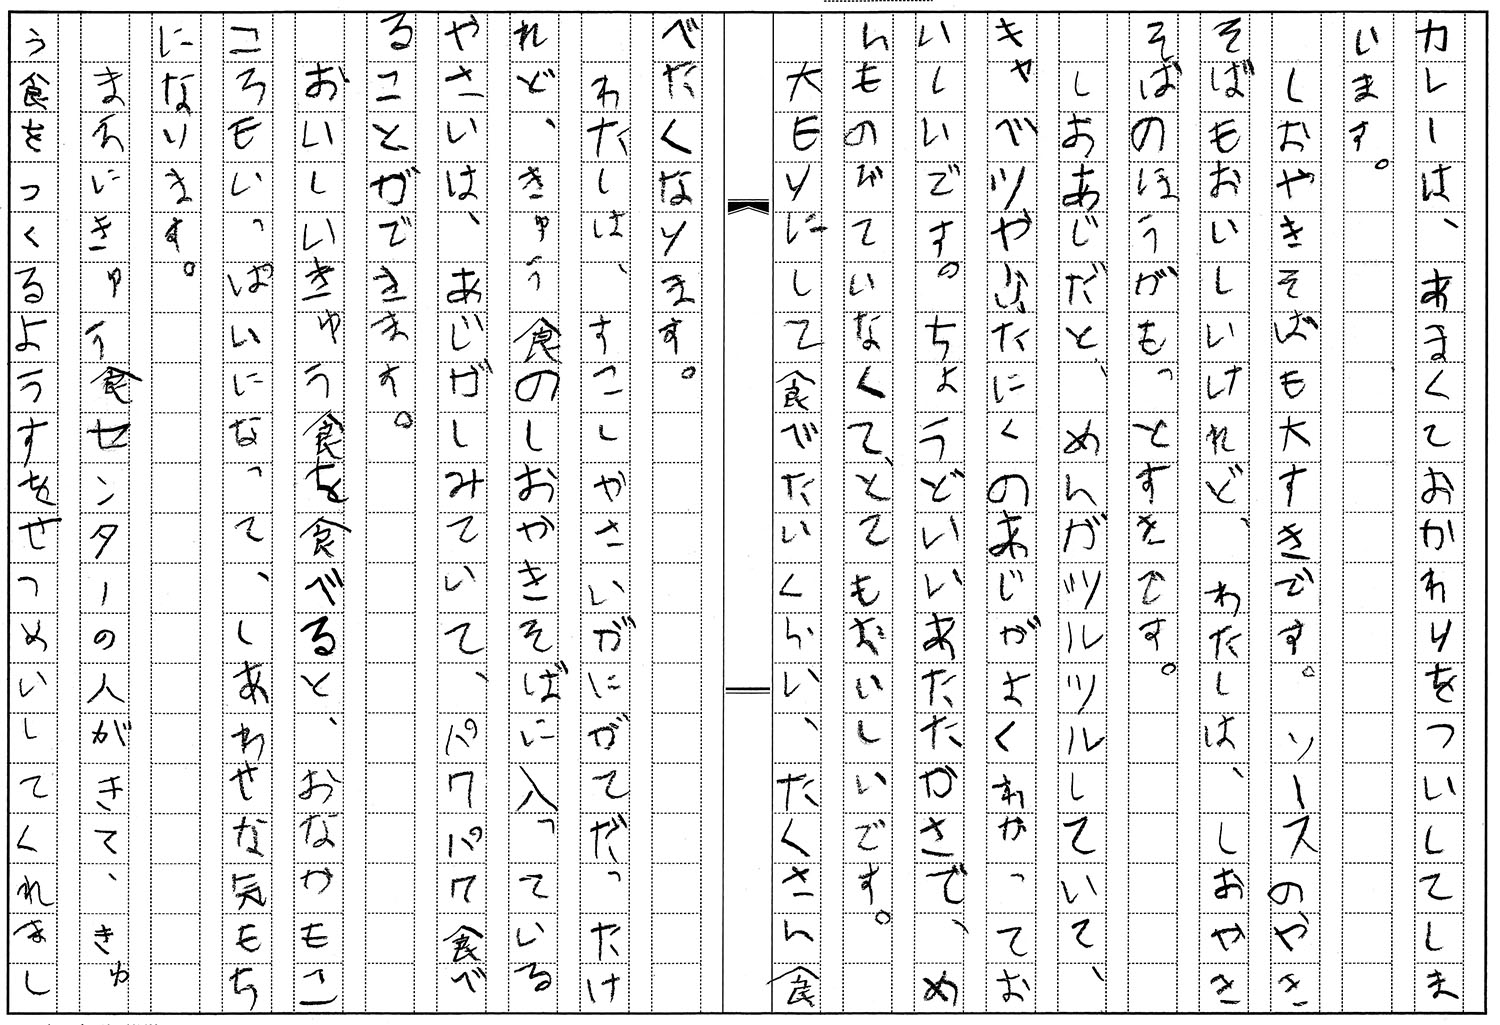 カレーは、あまくておかわりをついしてしま
います。
しおやきそばも大すきです。ソースのやき
そばもおいしいけれど、わたしは、しおやき
そばのほうがもっとすきです。
しおあじだと、めんがツルツルしていて、
キャベツやぶたにくのあじがよくわかってお
いしいです。ちょうどいいあたたかさで、め
んものびていなくて、とてもおいしいです。
大モリにして食べたいくらい、たくさん食
べたくなります。
わたしは、すこしやさいがにがてだったけ
れど、きゅう食のしおやきそばに入っている
やさいは、あじがしみていて、パクパク食べ
ることができます。
おいしいきゅう食を食べると、おなかもこ
コろもいっぱいになって、しあわせな気もち
になります。
まえにきゅう食センターの人がきて、きゅ
う食をつくるようすをせつめいしてくれまし